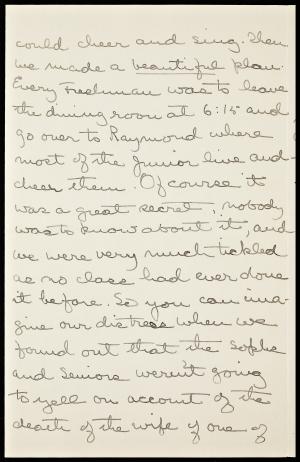 could cheer and sing. Then
we made a beautiful plan.
Every Freshman was to leave
the dining room at 6:15 and
go over to Raymond where
most of the Junior live and
cheer them. Of course it
was a great secret; nobody
was to know about it, and
we were very much tickled
as no class had ever done
it before. So you can ima-
gine our distress when we
found out that the Sophs
and Seniors weren't going
to yell on account of the
death of the wife of one of